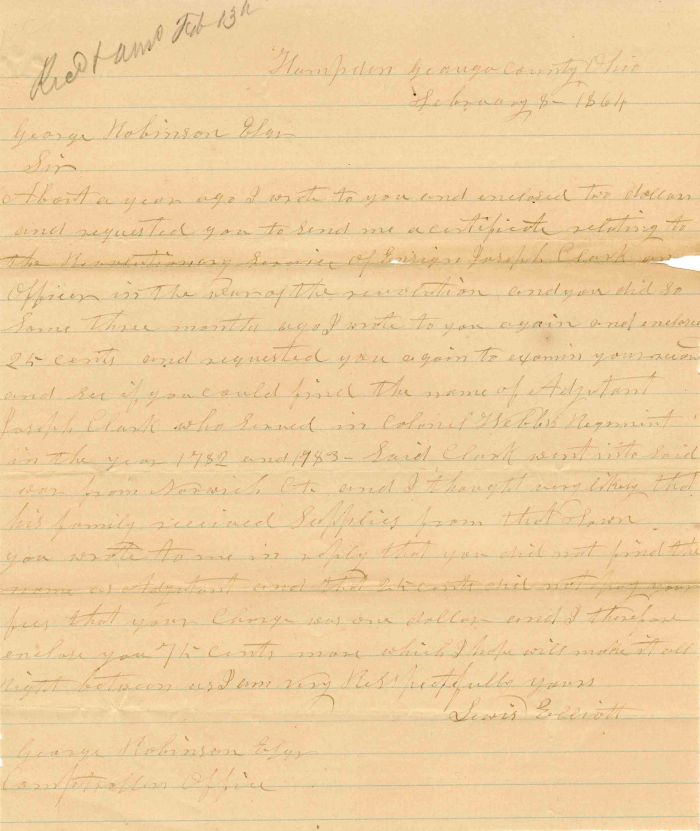 Recd & ansd Feb 13th
Hampden Geauga County Ohio
February 8- 1864
George Robinson Esqr
Sir
About a year ago I wrote to you and enclosed two dollars
and requested you to send me a certificate relating to
the Revolutionary Service of Ensign Joseph Clark an
Officer in the war of the revolution and you did so
Some three months ago I wrote to you again and enclosed
25 cents and requested you again to examin your records
and see if you could find the name of Adjutant
Joseph Clark who served in Colonel Webbs Regement
in the year 1782 and 1983- Said Clark went into said
war from Norwich Ct. and I thought very likely that
his family received Supplies from that Town
you wrote to me in reply that you did not find the
name as Adjutant and that 25 cents did not pay your
fees that your Charge was one dollar and I therefore
enclose you 75 cents more which I hope will make it all
right between us I am very Respectfully yours
Lewis Elliott
George Robinson Esqr
Comptrollers Office